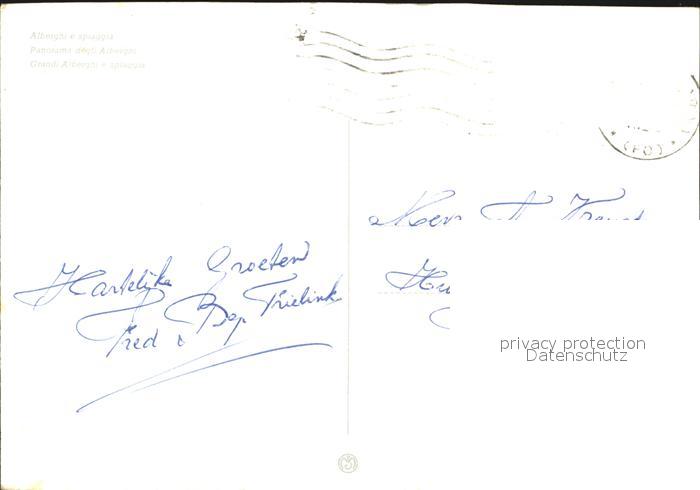 Alberghi e spiaggia
Panorama degli Alberghi
Grandi Alberghi e spiaggia
(FO)
Hartelijke Groeten
Fred & Bep Trielink
privacy protection
Datenschutz